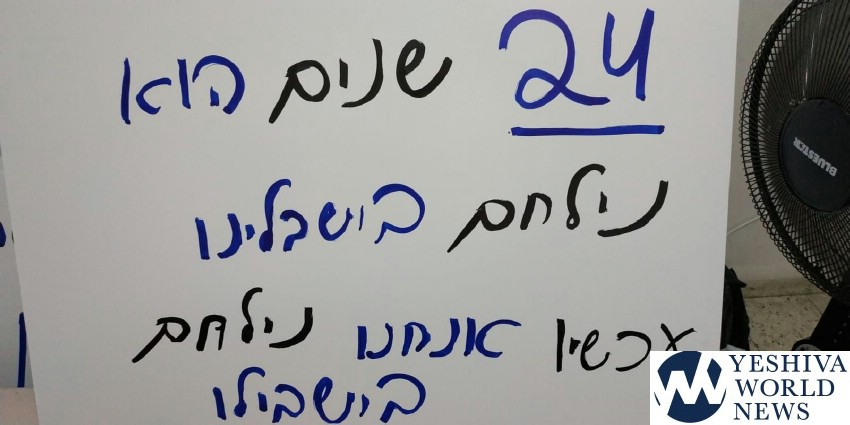 24 שנים הוא
נילחם בישבלינו
עכשיו אנחנו נילחם
בישבילו
BLUESTAR
YESHIVA
WORLD
NEWS